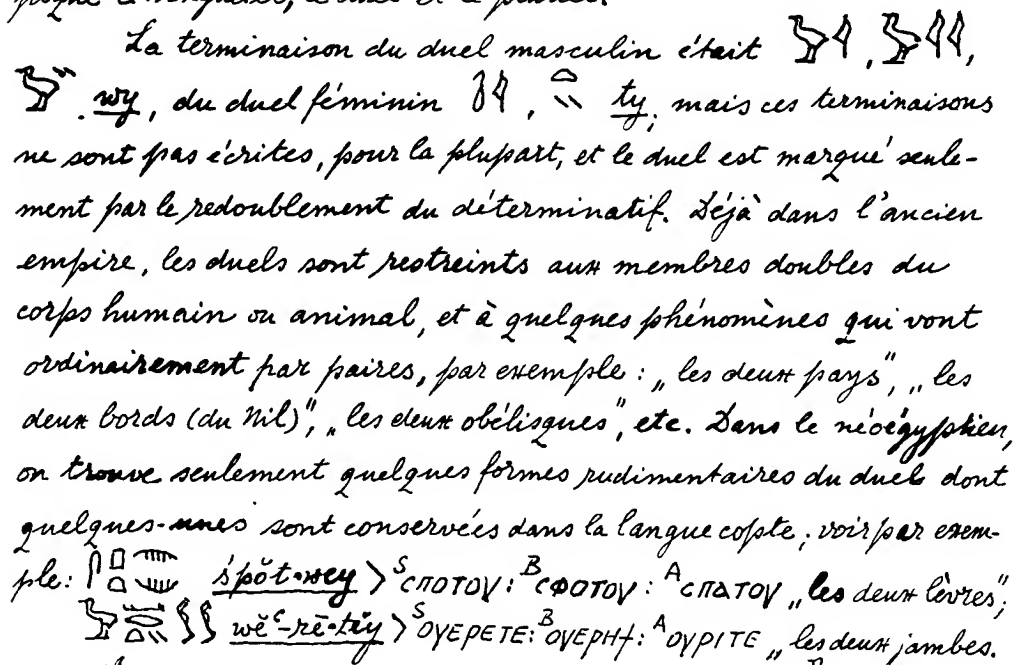 La terminaison du duel masculin était 𓅱𓇋, 𓅱𓇋𓇋,
𓅱𓏭. wy, du duel féminin 𓍘𓇋, 𓏏𓏭 ty; mais ces terminaisons
ne sont pas écrites, pour la plupart, et le duel est marqué seule-
ment par le redoublement du déterminatif. Déjà dans l'ancien
empire, les duels sont restreints aux membres doubles du
corps humain ou animal, et à quelques phénomènes qui vont
ordinairement par paires, par exemple: „les deux pays", „les
deux bords (du Nil)", „les deux obélisques", etc. Dans le néoégyptien,
on trouve seulement quelques formes rudimentaires du duel dont
quelques-unes sont conservées dans la langue copte; voir par exem-
ple: śpŏt-wey > ˢⲥⲡⲟⲧⲟⲩ: ᴮⲥⲫⲟⲧⲟⲩ: ᴬⲥⲡⲁⲧⲟⲩ „les deux lèvres";
wĕꜥ-rē-tĕy > ˢⲟⲩⲉⲣⲉⲧⲉ: ᴮⲟⲩⲉⲣⲏϯ: ᴬⲟⲩⲣⲓⲧⲉ „les deux jambes.